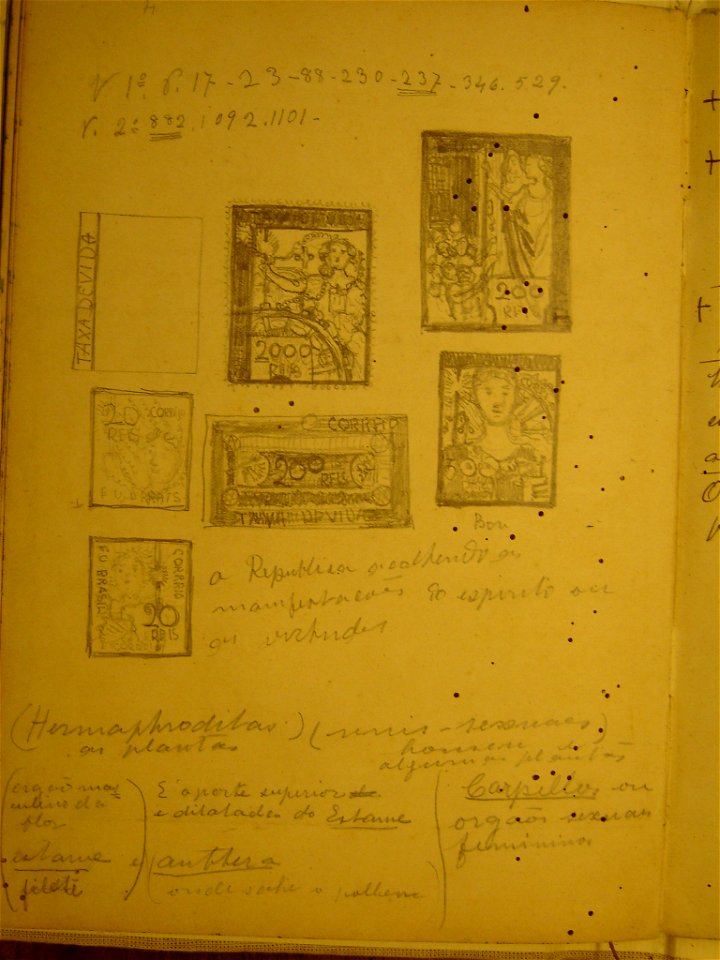 V 1º. P. 17 - 23 - 88 - 230 - 237 - 346. 529.
V. 2º 882. 1092. 1101 -
TAXA DEVIDA
2000
REIS
200
REIS
20 CORREIO
REIS
E.U. BRASIS
CORREIO
200
REIS
TAXA DEVIDA
300
Bon
CORREIO
EU BRASIL
20
REIS
a Republica acolhendo as
manifestações do espirito ou
as virtudes
(Hermaphroditas) ( - sexuaes)
as plantas
homem
algumas plantas
(orgão mas
culino da
flor
estame e
filete
E' a parte superior
e dilatada do Estame
(anthera
onde o pollen
Carpellos ou
orgãos sexuaes
femininos